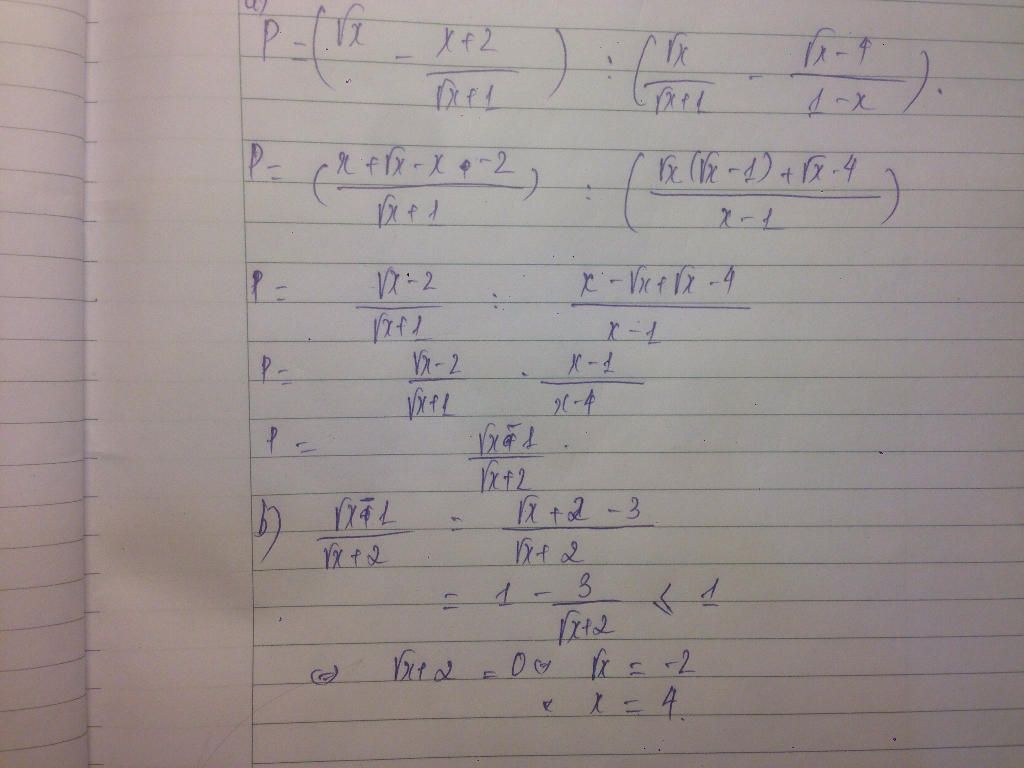 a)
P = (√x - (x+2)/(√x+1)) : (√x/(√x+1) - (√x-4)/(1-x)).
P = ((x+√x-x-2)/(√x+1)) : ((√x(√x-1)+√x-4)/(x-1))
P = (√x-2)/(√x+1) : (x-√x+√x-4)/(x-1)
P = (√x-2)/(√x+1) . (x-1)/(x-4)
P = (√x-1)/(√x+2).
b) (√x-1)/(√x+2) = (√x+2-3)/(√x+2)
= 1 - 3/(√x+2) < 1
⇔ √x+2 = 0 ⇔ √x = -2
x = 4.